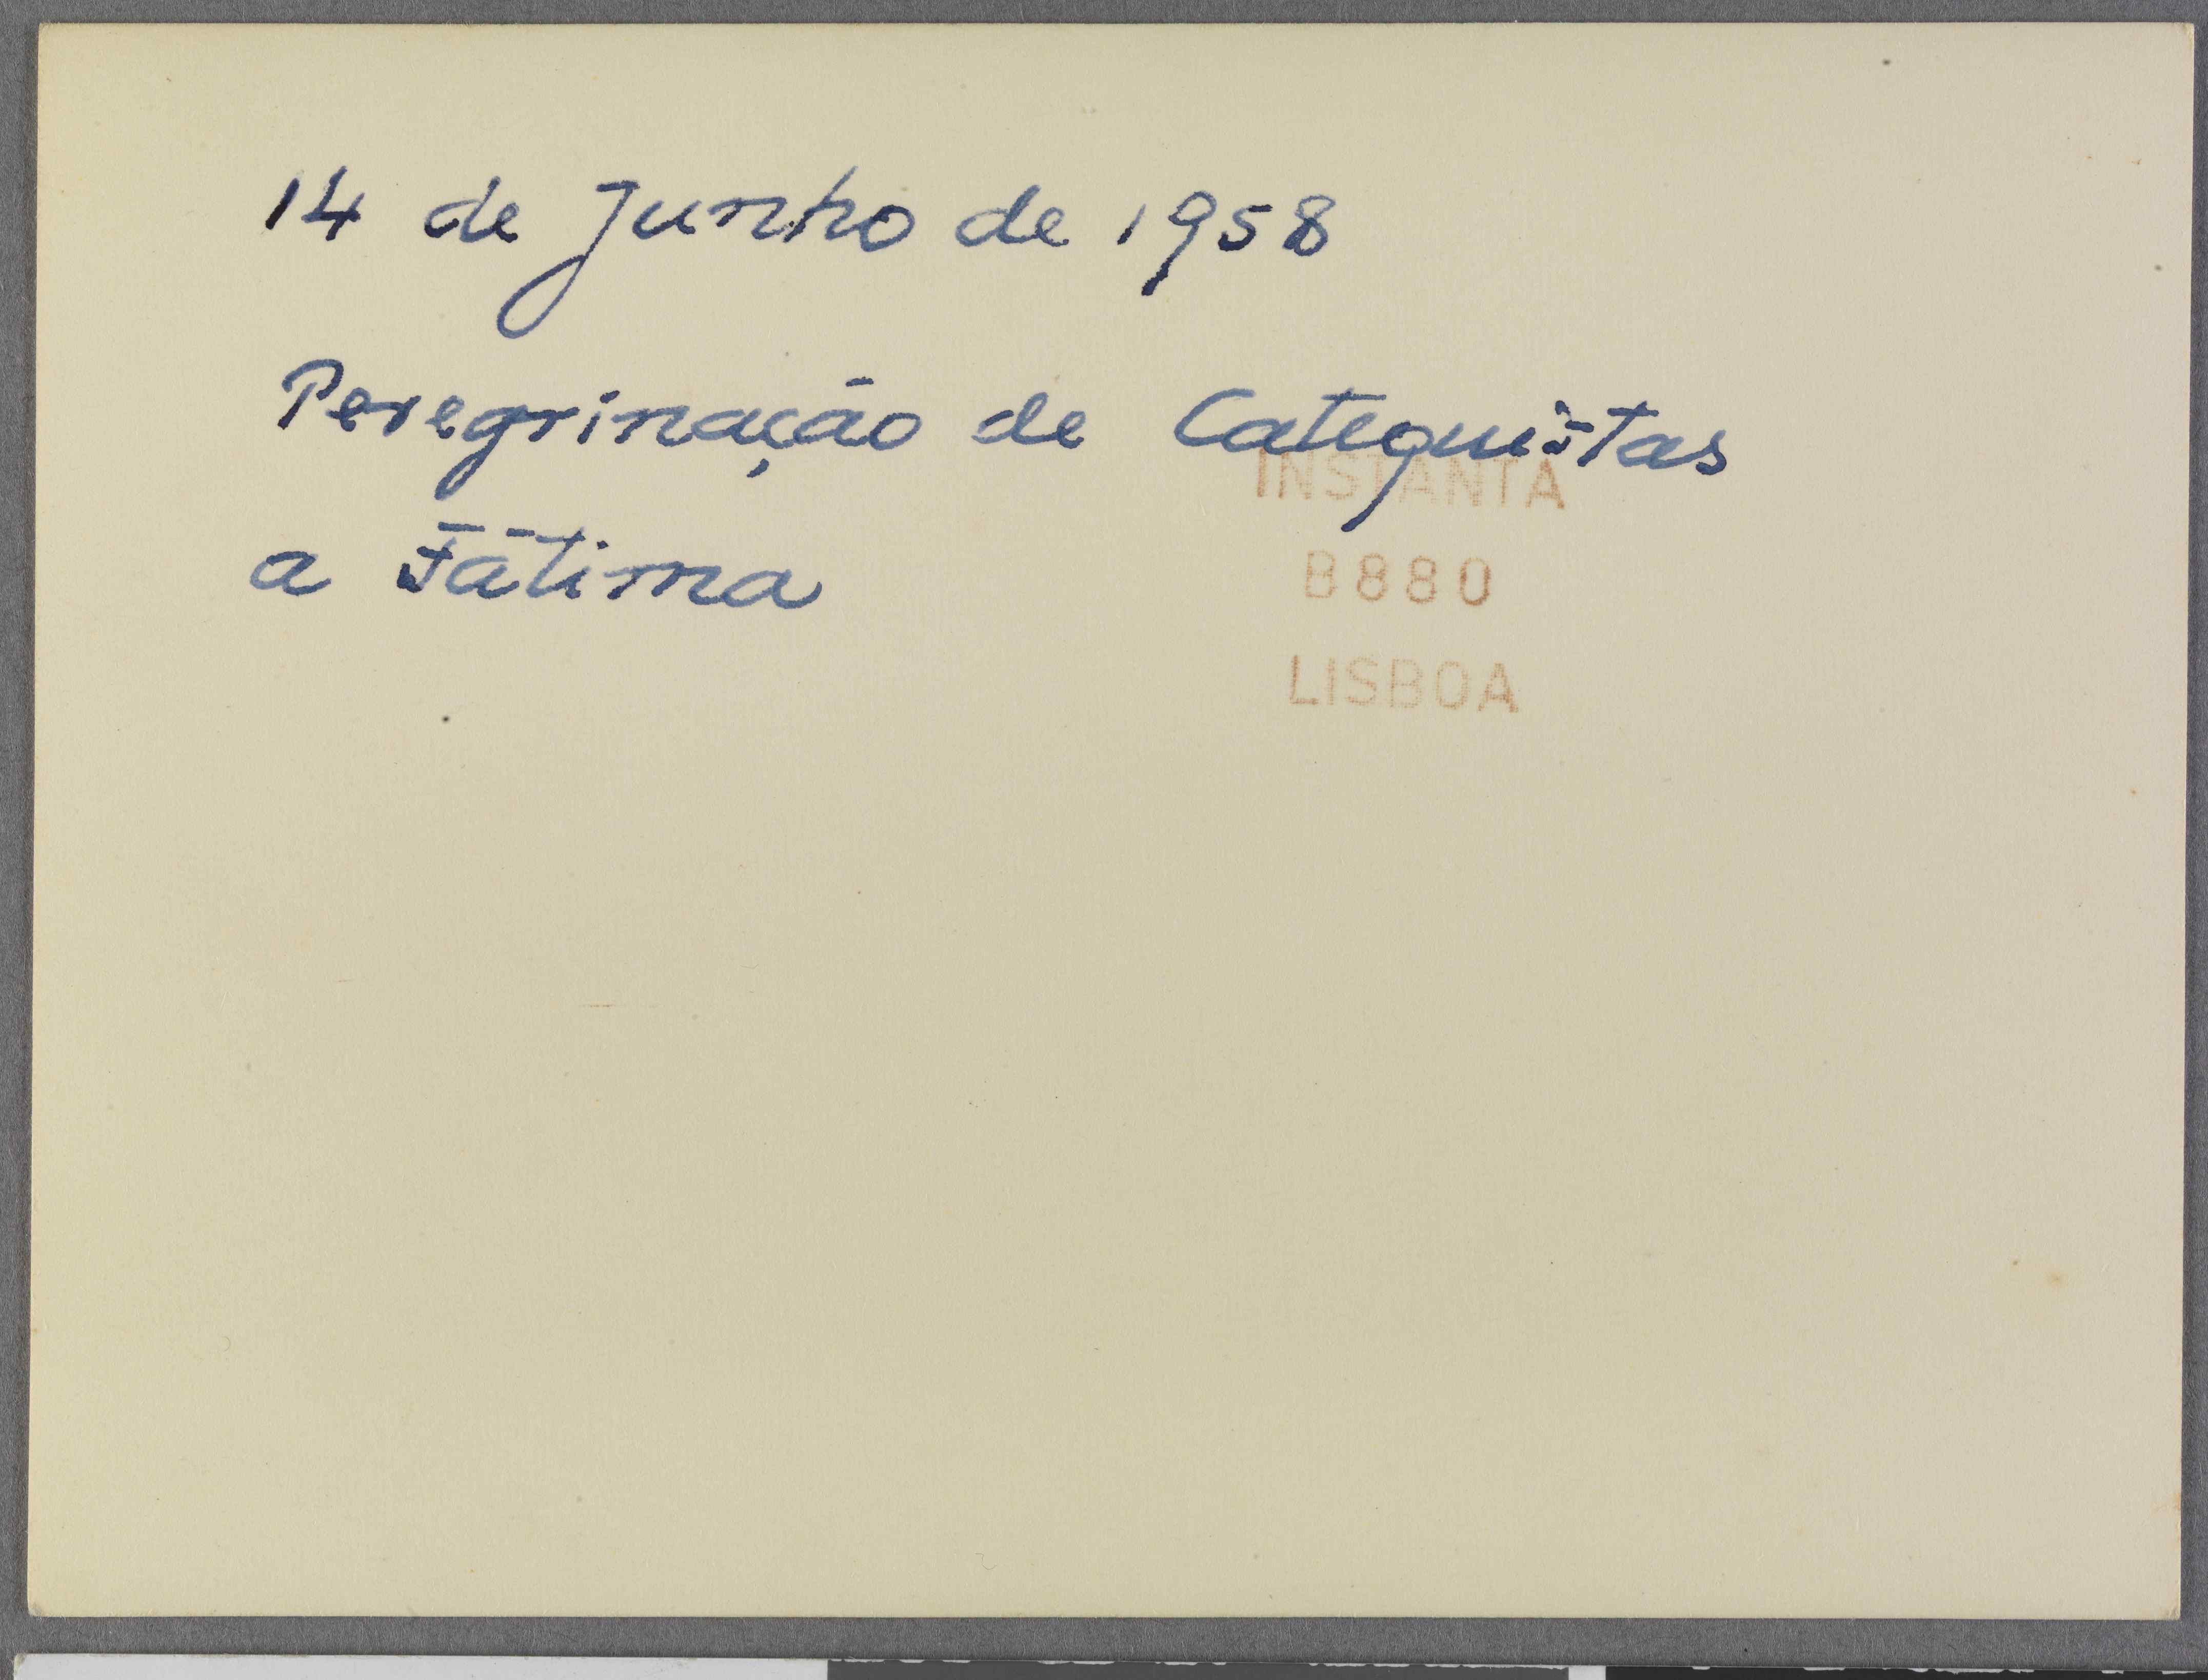 14 de Junho de 1958
Peregrinação de Catequistas
a Fátima
INSTANTA
B880
LISBOA